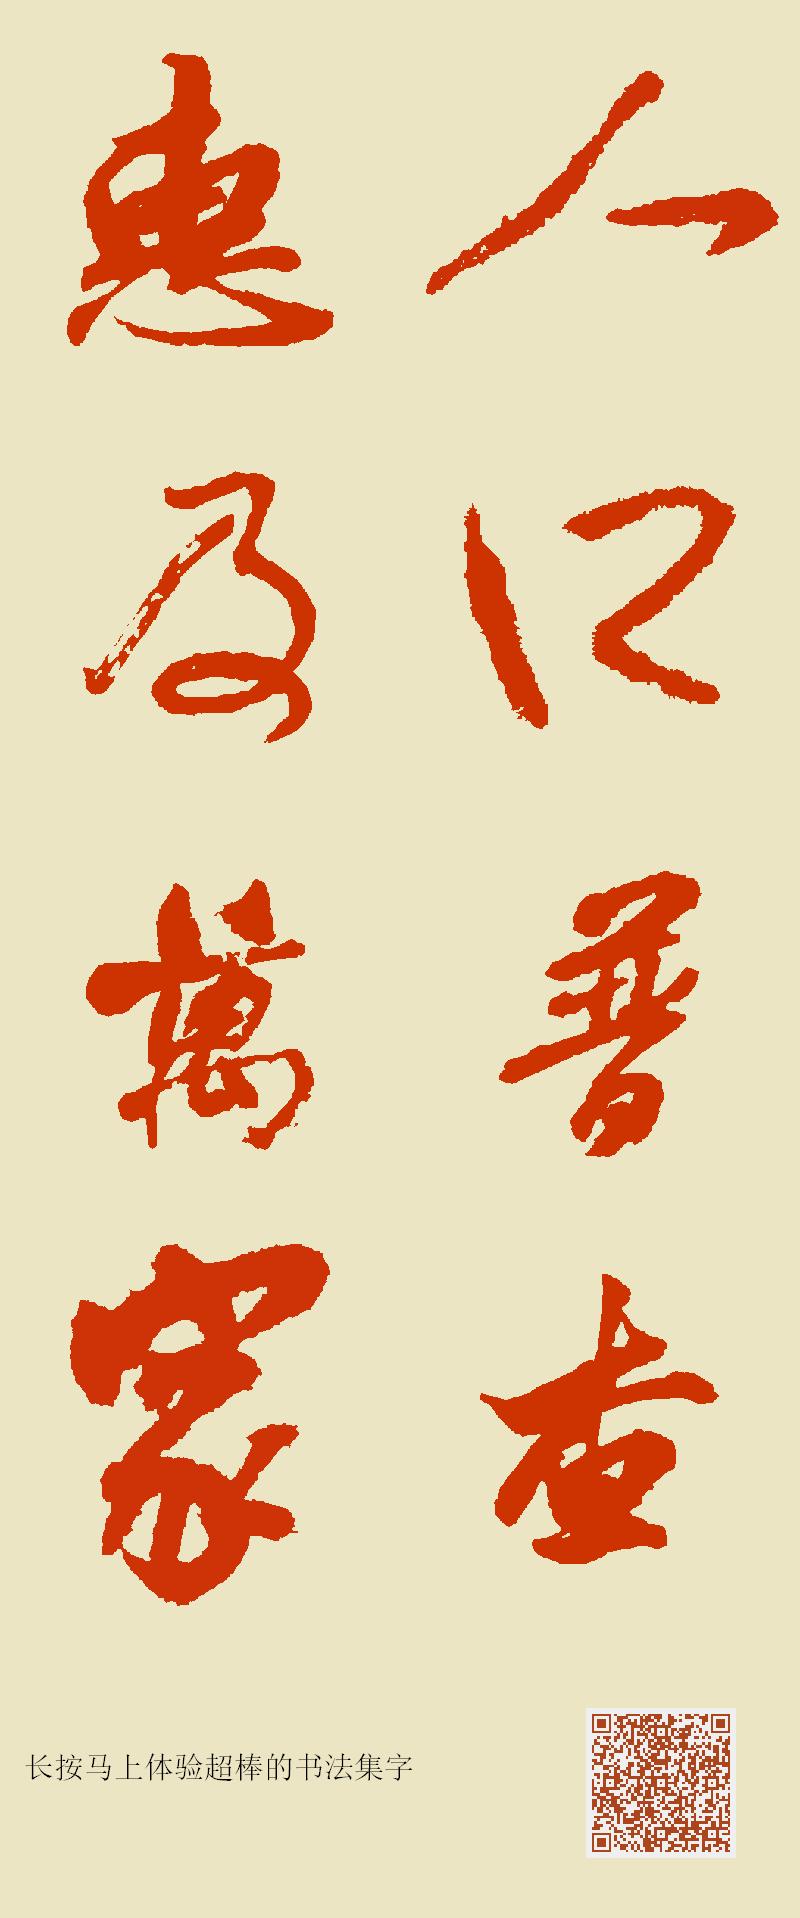 人口普查
惠及萬家
长按马上体验超棒的书法集字